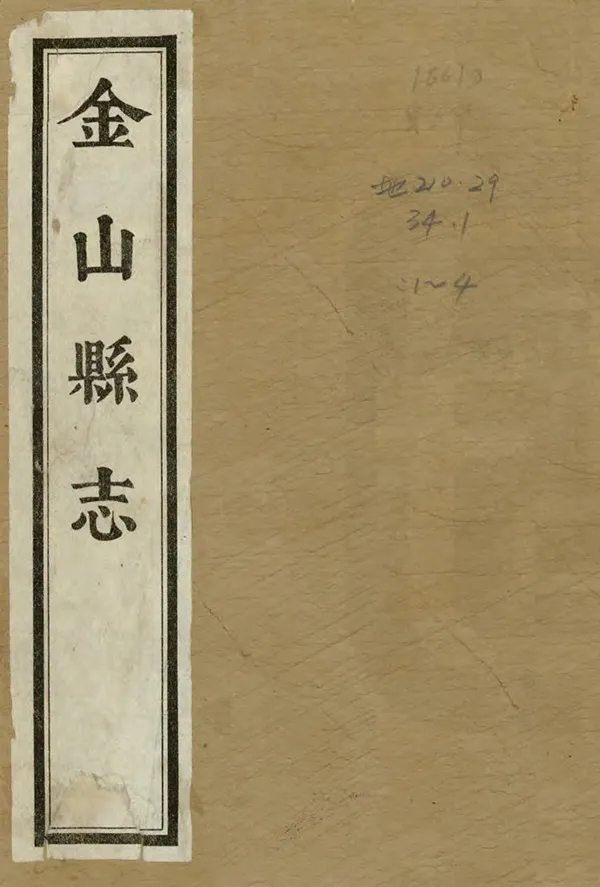 金山縣志
地210.29
34.1
:1~4